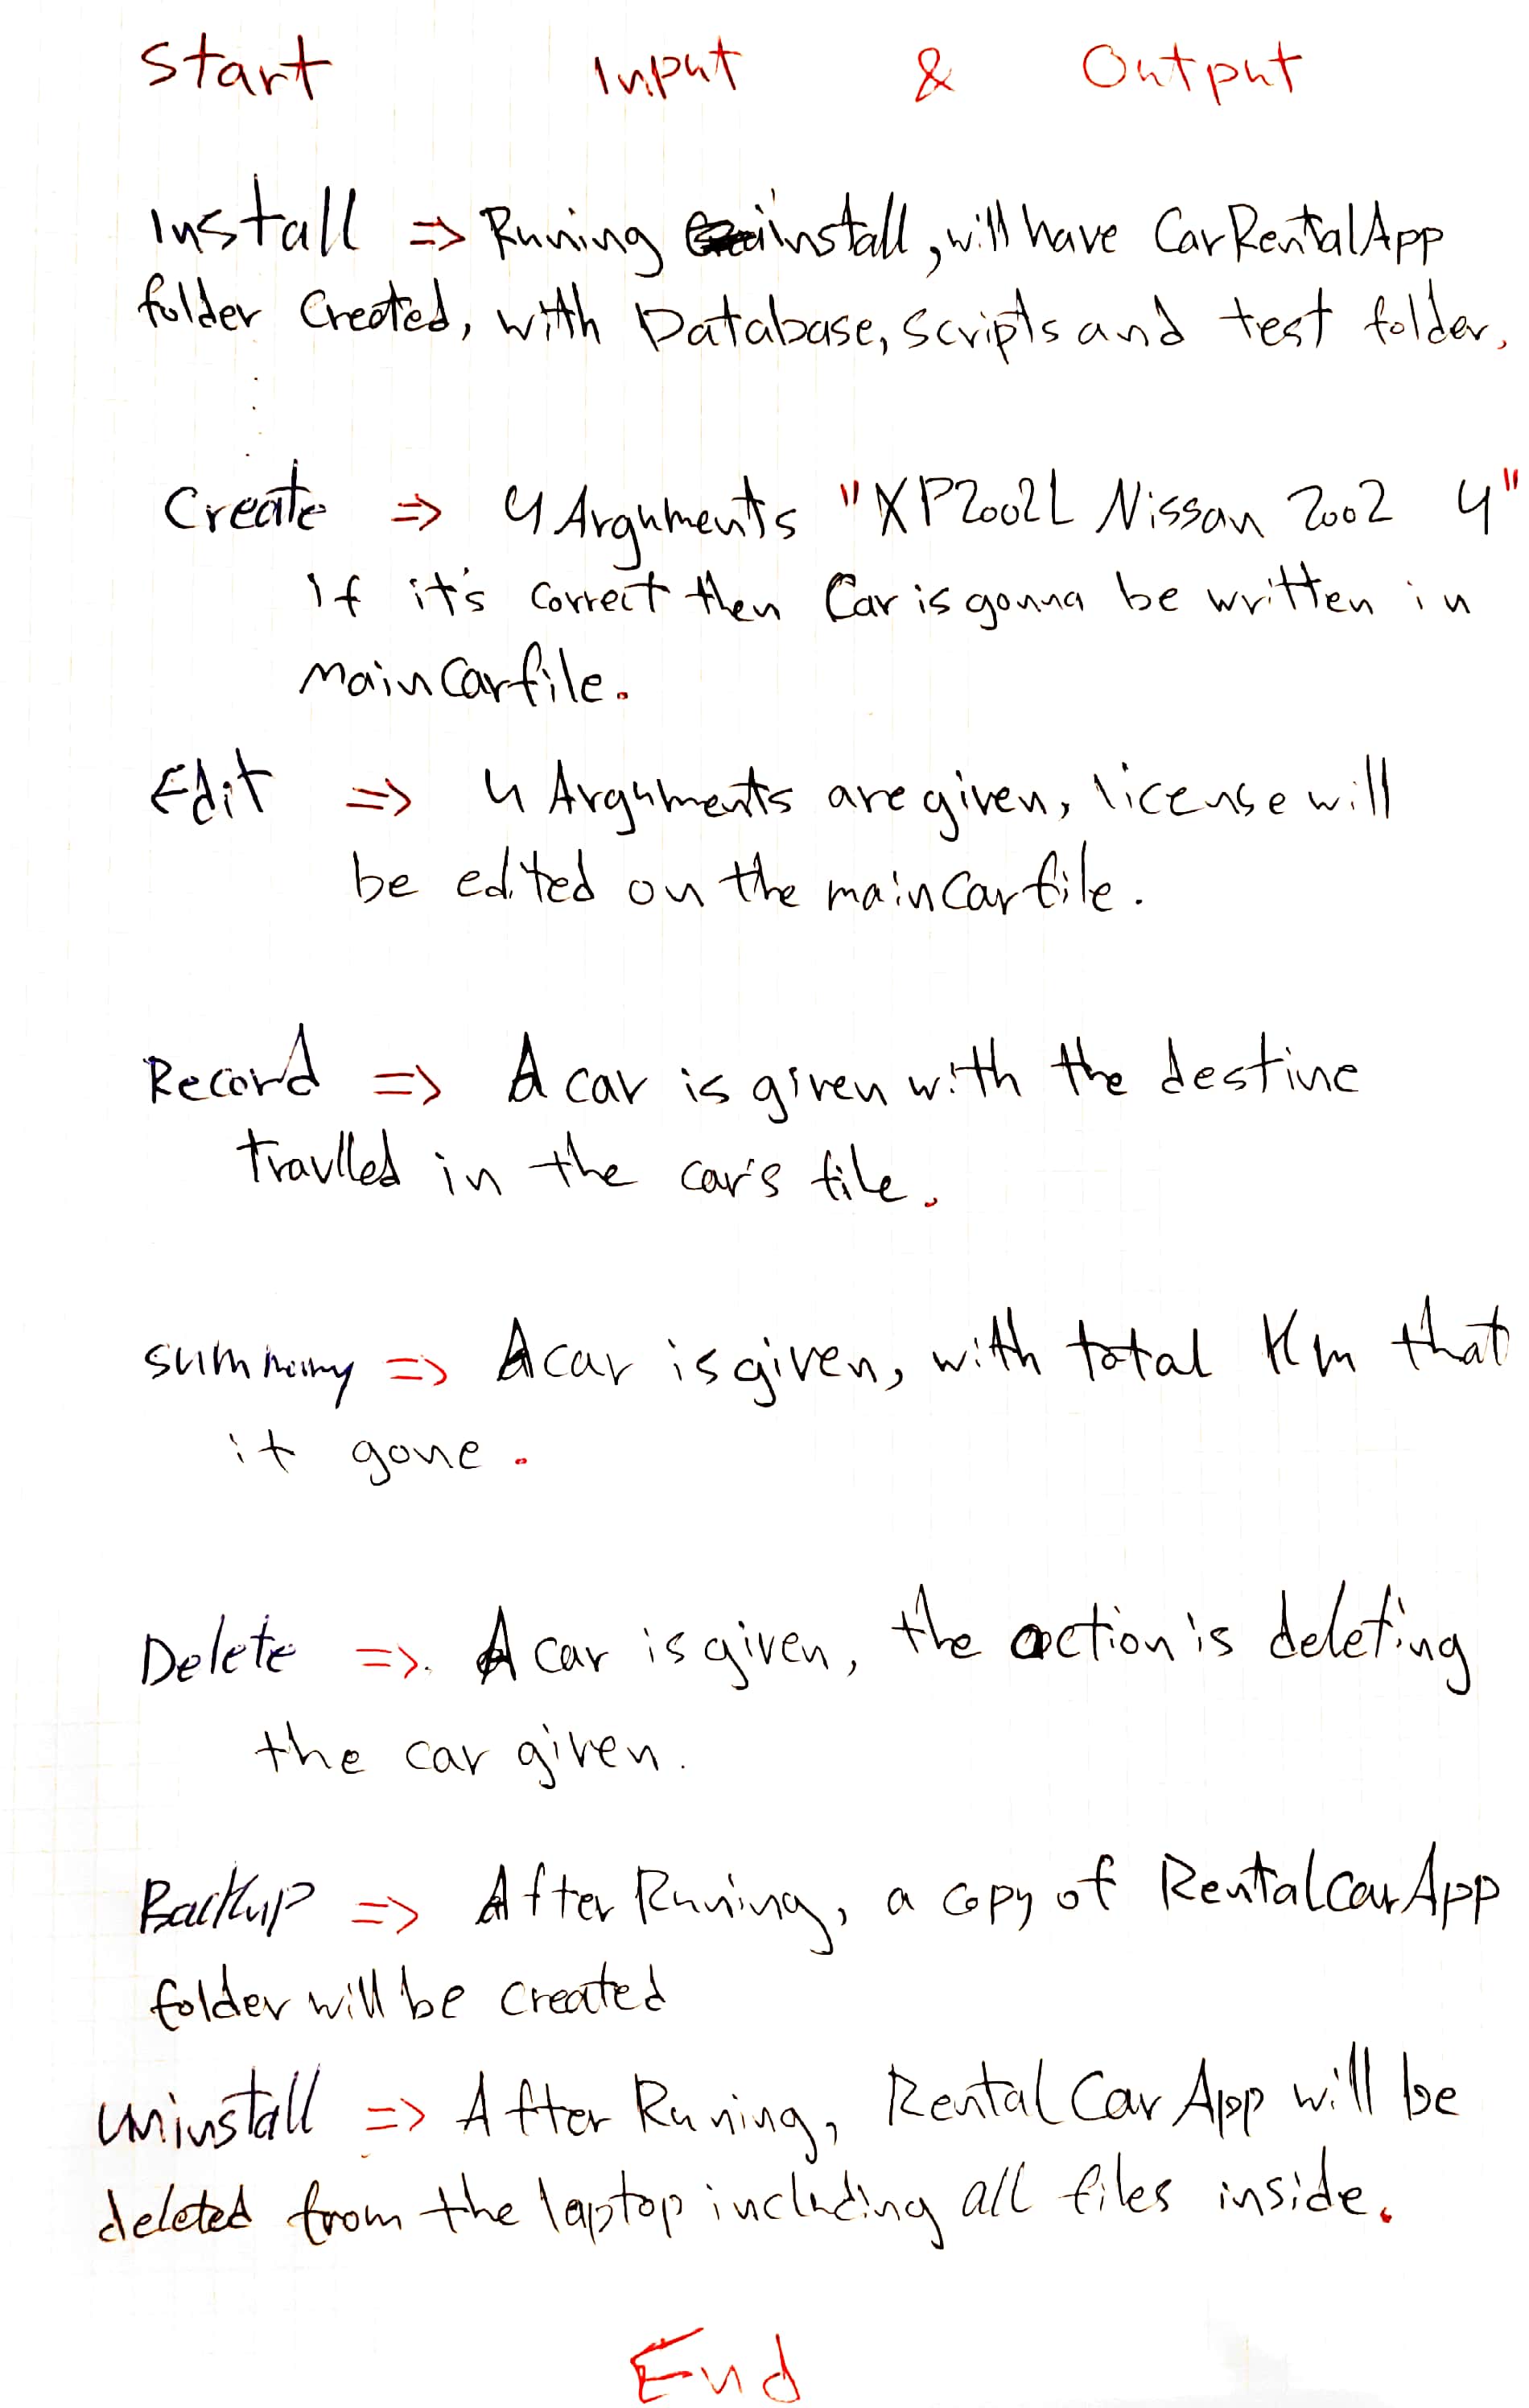 Start Input & Output
Install => Runing install, will have CarRentalApp
folder Created, with Database, Scripts and test folder.
Create => 4 Arguments "XP2002L Nissan 2002 4"
If it's correct then Car is gonna be written in
mainCarfile.
Edit => 4 Arguments are given, license will
be edited on the mainCarfile.
Record => A car is given with the destine
Travlled in the car's file.
summary => A car is given, with total Km that
it gone.
Delete => A car is given, the action is deleting
the car given.
Backup => After Runing, a copy of RentalCarApp
folder will be created
Uninstall => After Runing, RentalCarApp will be
deleted from the laptop including all files inside.
End